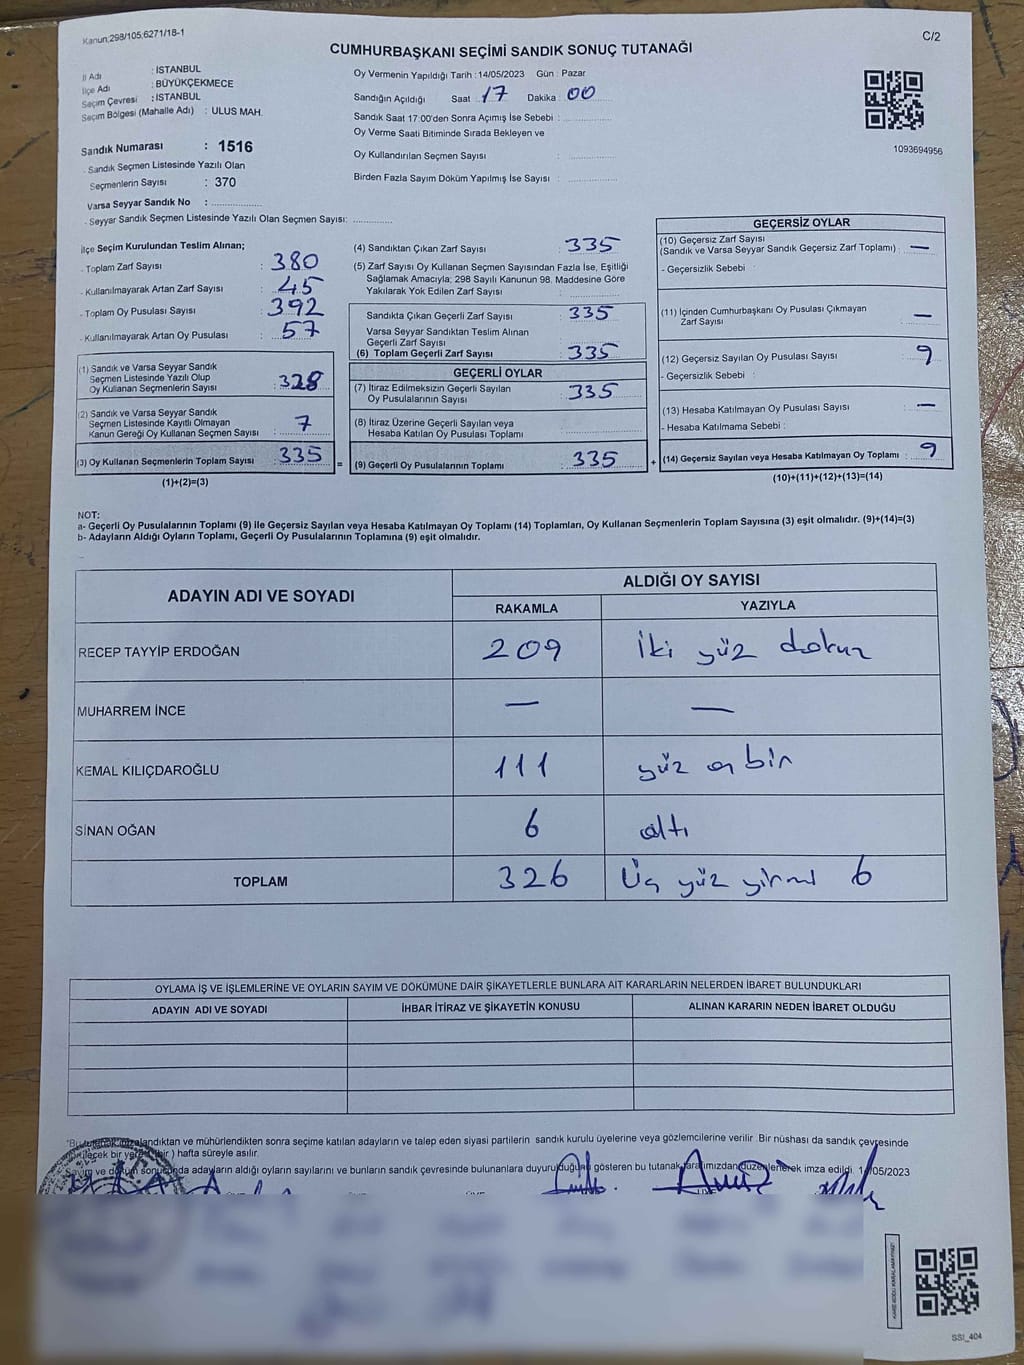 Kanun:298/105;6271/18-1
C/2
CUMHURBAŞKANI SEÇİMİ SANDIK SONUÇ TUTANAĞI
İl Adı : İSTANBUL
İlçe Adı : BÜYÜKÇEKMECE
Seçim Çevresi : İSTANBUL
Seçim Bölgesi (Mahalle Adı) : ULUS MAH.
Sandık Numarası : 1516
- Sandık Seçmen Listesinde Yazılı Olan
Seçmenlerin Sayısı : 370
Varsa Seyyar Sandık No :
- Seyyar Sandık Seçmen Listesinde Yazılı Olan Seçmen Sayısı:
Oy Vermenin Yapıldığı Tarih : 14/05/2023 Gün : Pazar
Sandığın Açıldığı Saat : 17 Dakika : 00
Sandık Saat 17:00'den Sonra Açımış İse Sebebi :
Oy Verme Saati Bitiminde Sırada Bekleyen ve
Oy Kullandırılan Seçmen Sayısı :
Birden Fazla Sayım Döküm Yapılmış İse Sayısı :
1093694956
İlçe Seçim Kurulundan Teslim Alınan;
- Toplam Zarf Sayısı : 380
- Kullanılmayarak Artan Zarf Sayısı : 45
- Toplam Oy Pusulası Sayısı : 392
- Kullanılmayarak Artan Oy Pusulası : 57
(1) Sandık ve Varsa Seyyar Sandık
Seçmen Listesinde Yazılı Olup
Oy Kullanan Seçmenlerin Sayısı : 328
(2) Sandık ve Varsa Seyyar Sandık
Seçmen Listesinde Kayıtlı Olmayan
Kanun Gereği Oy Kullanan Seçmen Sayısı : 7
(3) Oy Kullanan Seçmenlerin Toplam Sayısı : 335
(1)+(2)=(3)
=
(4) Sandıktan Çıkan Zarf Sayısı : 335
(5) Zarf Sayısı Oy Kullanan Seçmen Sayısından Fazla İse, Eşitliği
Sağlamak Amacıyla; 298 Sayılı Kanunun 98. Maddesine Göre
Yakılarak Yok Edilen Zarf Sayısı :
Sandıkta Çıkan Geçerli Zarf Sayısı : 335
Varsa Seyyar Sandıktan Teslim Alınan
Geçerli Zarf Sayısı :
(6) Toplam Geçerli Zarf Sayısı : 335
GEÇERLİ OYLAR
(7) İtiraz Edilmeksizin Geçerli Sayılan
Oy Pusulalarının Sayısı : 335
(8) İtiraz Üzerine Geçerli Sayılan veya
Hesaba Katılan Oy Pusulası Toplamı :
(9) Geçerli Oy Pusulalarının Toplamı : 335
+
GEÇERSİZ OYLAR
(10) Geçersiz Zarf Sayısı
(Sandık ve Varsa Seyyar Sandık Geçersiz Zarf Toplamı) : —
- Geçersizlik Sebebi :
(11) İçinden Cumhurbaşkanı Oy Pusulası Çıkmayan
Zarf Sayısı : —
(12) Geçersiz Sayılan Oy Pusulası Sayısı : 9
- Geçersizlik Sebebi :
(13) Hesaba Katılmayan Oy Pusulası Sayısı : —
- Hesaba Katılmama Sebebi :
(14) Geçersiz Sayılan veya Hesaba Katılmayan Oy Toplamı : 9
(10)+(11)+(12)+(13)=(14)
NOT:
a- Geçerli Oy Pusulalarının Toplamı (9) ile Geçersiz Sayılan veya Hesaba Katılmayan Oy Toplamı (14) Toplamları, Oy Kullanan Seçmenlerin Toplam Sayısına (3) eşit olmalıdır. (9)+(14)=(3)
b- Adayların Aldığı Oyların Toplamı, Geçerli Oy Pusulalarının Toplamına (9) eşit olmalıdır.
ADAYIN ADI VE SOYADI
ALDIĞI OY SAYISI
RAKAMLA YAZIYLA
RECEP TAYYİP ERDOĞAN 209 iki yüz dokuz
MUHARREM İNCE — —
KEMAL KILIÇDAROĞLU 111 yüz on bir
SİNAN OĞAN 6 altı
TOPLAM 326 Üç yüz yirmi 6
OYLAMA İŞ VE İŞLEMLERİNE VE OYLARIN SAYIM VE DÖKÜMÜNE DAİR ŞİKAYETLERLE BUNLARA AİT KARARLARIN NELERDEN İBARET BULUNDUKLARI
ADAYIN ADI VE SOYADI İHBAR İTİRAZ VE ŞİKAYETİN KONUSU ALINAN KARARIN NEDEN İBARET OLDUĞU
imzalandıktan ve mühürlendikten sonra seçime katılan adayların ve talep eden siyasi partilerin sandık kurulu üyelerine veya gözlemcilerine verilir .Bir nüshası da sandık çevresinde
bir ) hafta süreyle asılır.
ve döküm sonucunda adayların aldığı oyların sayılarını ve bunların sandık çevresinde bulunanlara duyurulduğunu gösteren bu tutanak tarafımızdan düzenlenerek imza edildi.
SSI_404